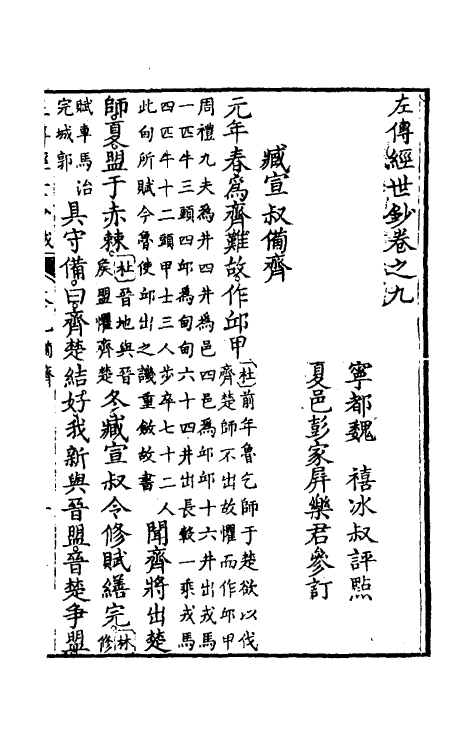 左傳經世鈔卷之九
寧都魏 禧冰叔評點
夏邑彭家屏樂君參訂
臧宣叔備齊
元年春爲齊難故作邱甲杜前年魯乞師于楚欲以伐
齊楚師不出故懼而作邱甲
周禮九夫為井四井爲邑四邑爲邱邱十六井出戎馬
一匹牛三頭四邱爲甸甸六十四井出長轂一乘戎馬
四匹牛十二頭甲士三人步卒七十二人
此甸所賦今魯使邱出之譏重斂故書
聞齊將出楚
師夏盟于赤棘杜晉地與晉
侯盟懼齊楚
冬臧宣叔令修賦繕完林修
賦車馬治
完城郭
具守備曰齊楚結好我新與晉盟晉楚爭盟